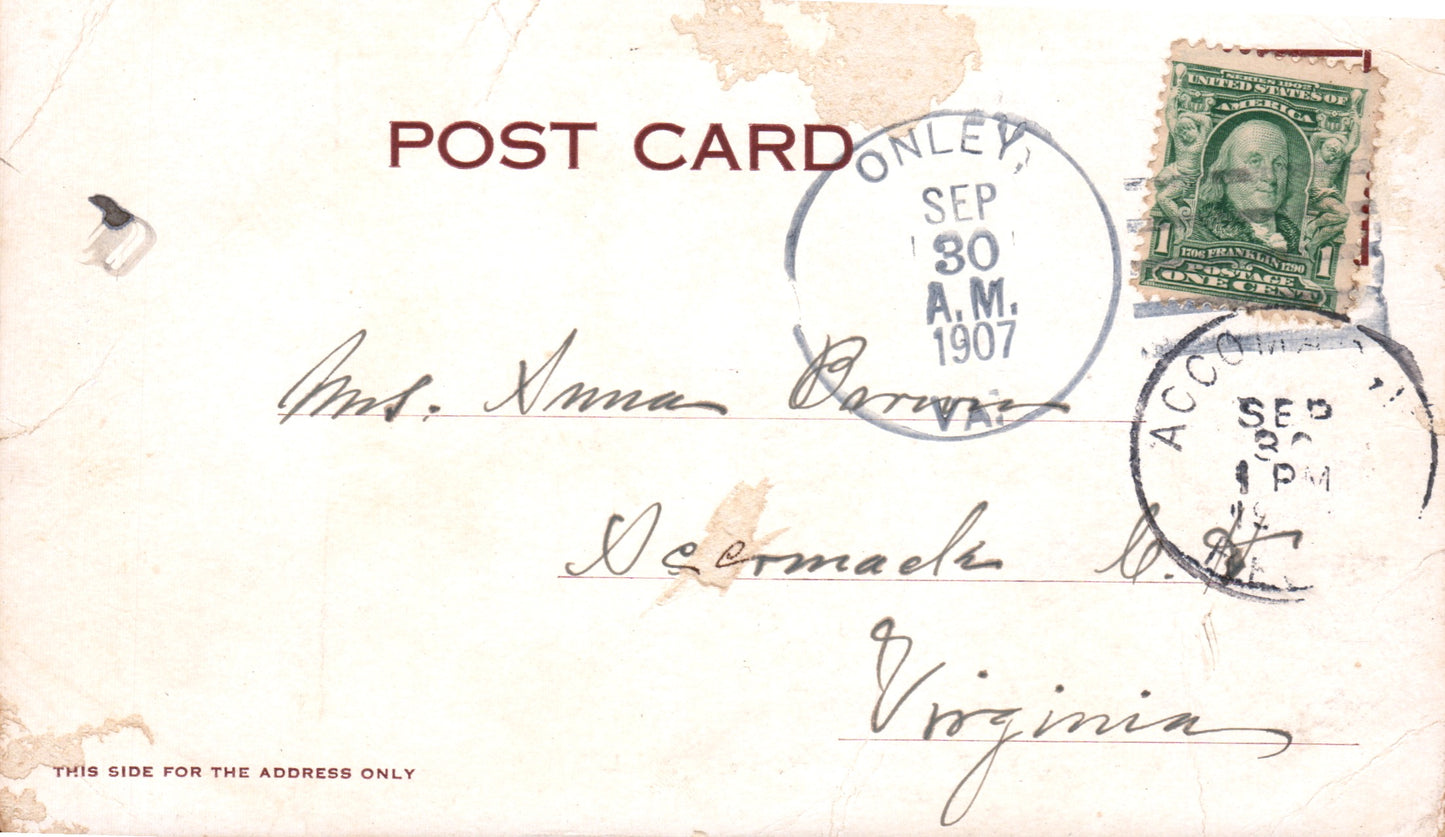 POST CARD
SERIES 1902
UNITED STATES OF
AMERICA
1 1706 FRANKLIN 1790 1
POSTAGE
ONE CENT
ONLEY,
SEP
30
A.M.
1907
VA.
ACCOMA
SEP
30
1 PM
Mrs. Anna
Accomack C. H
Virginia
THIS SIDE FOR THE ADDRESS ONLY